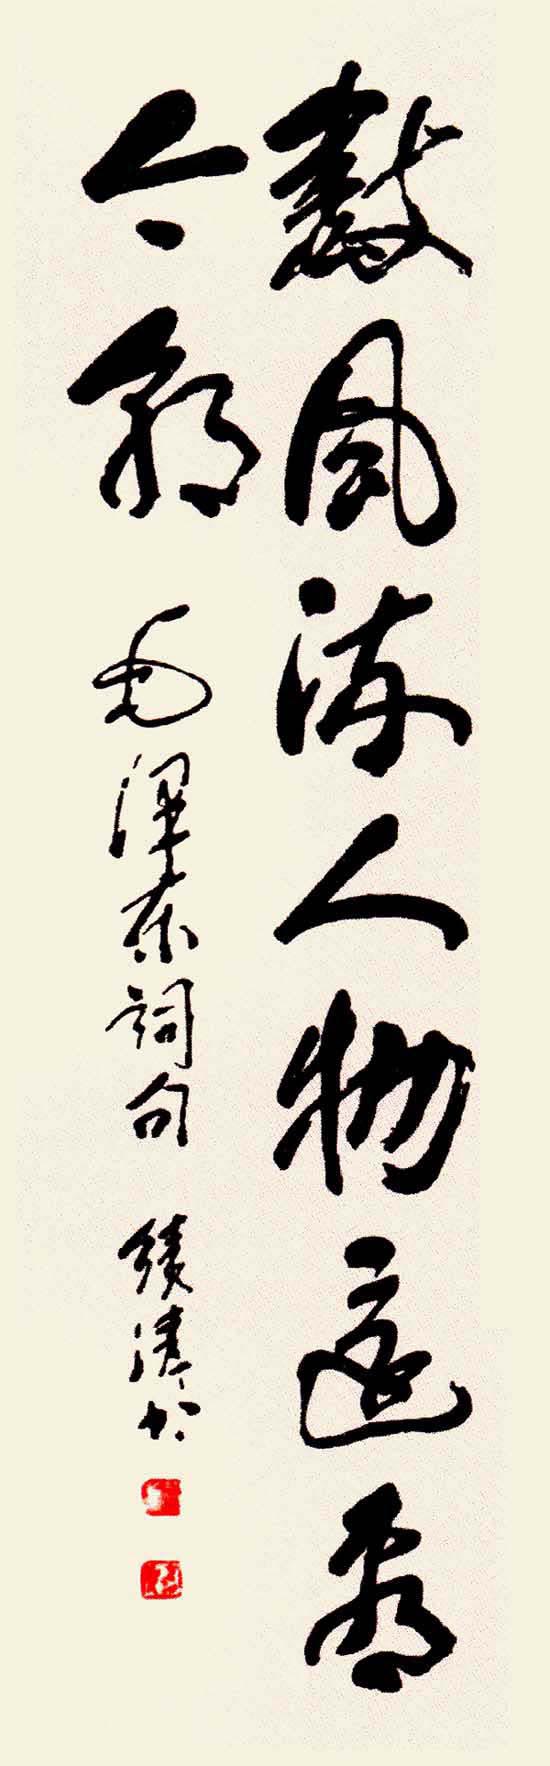 數風流人物還看
今朝 毛澤东詞句 績清书